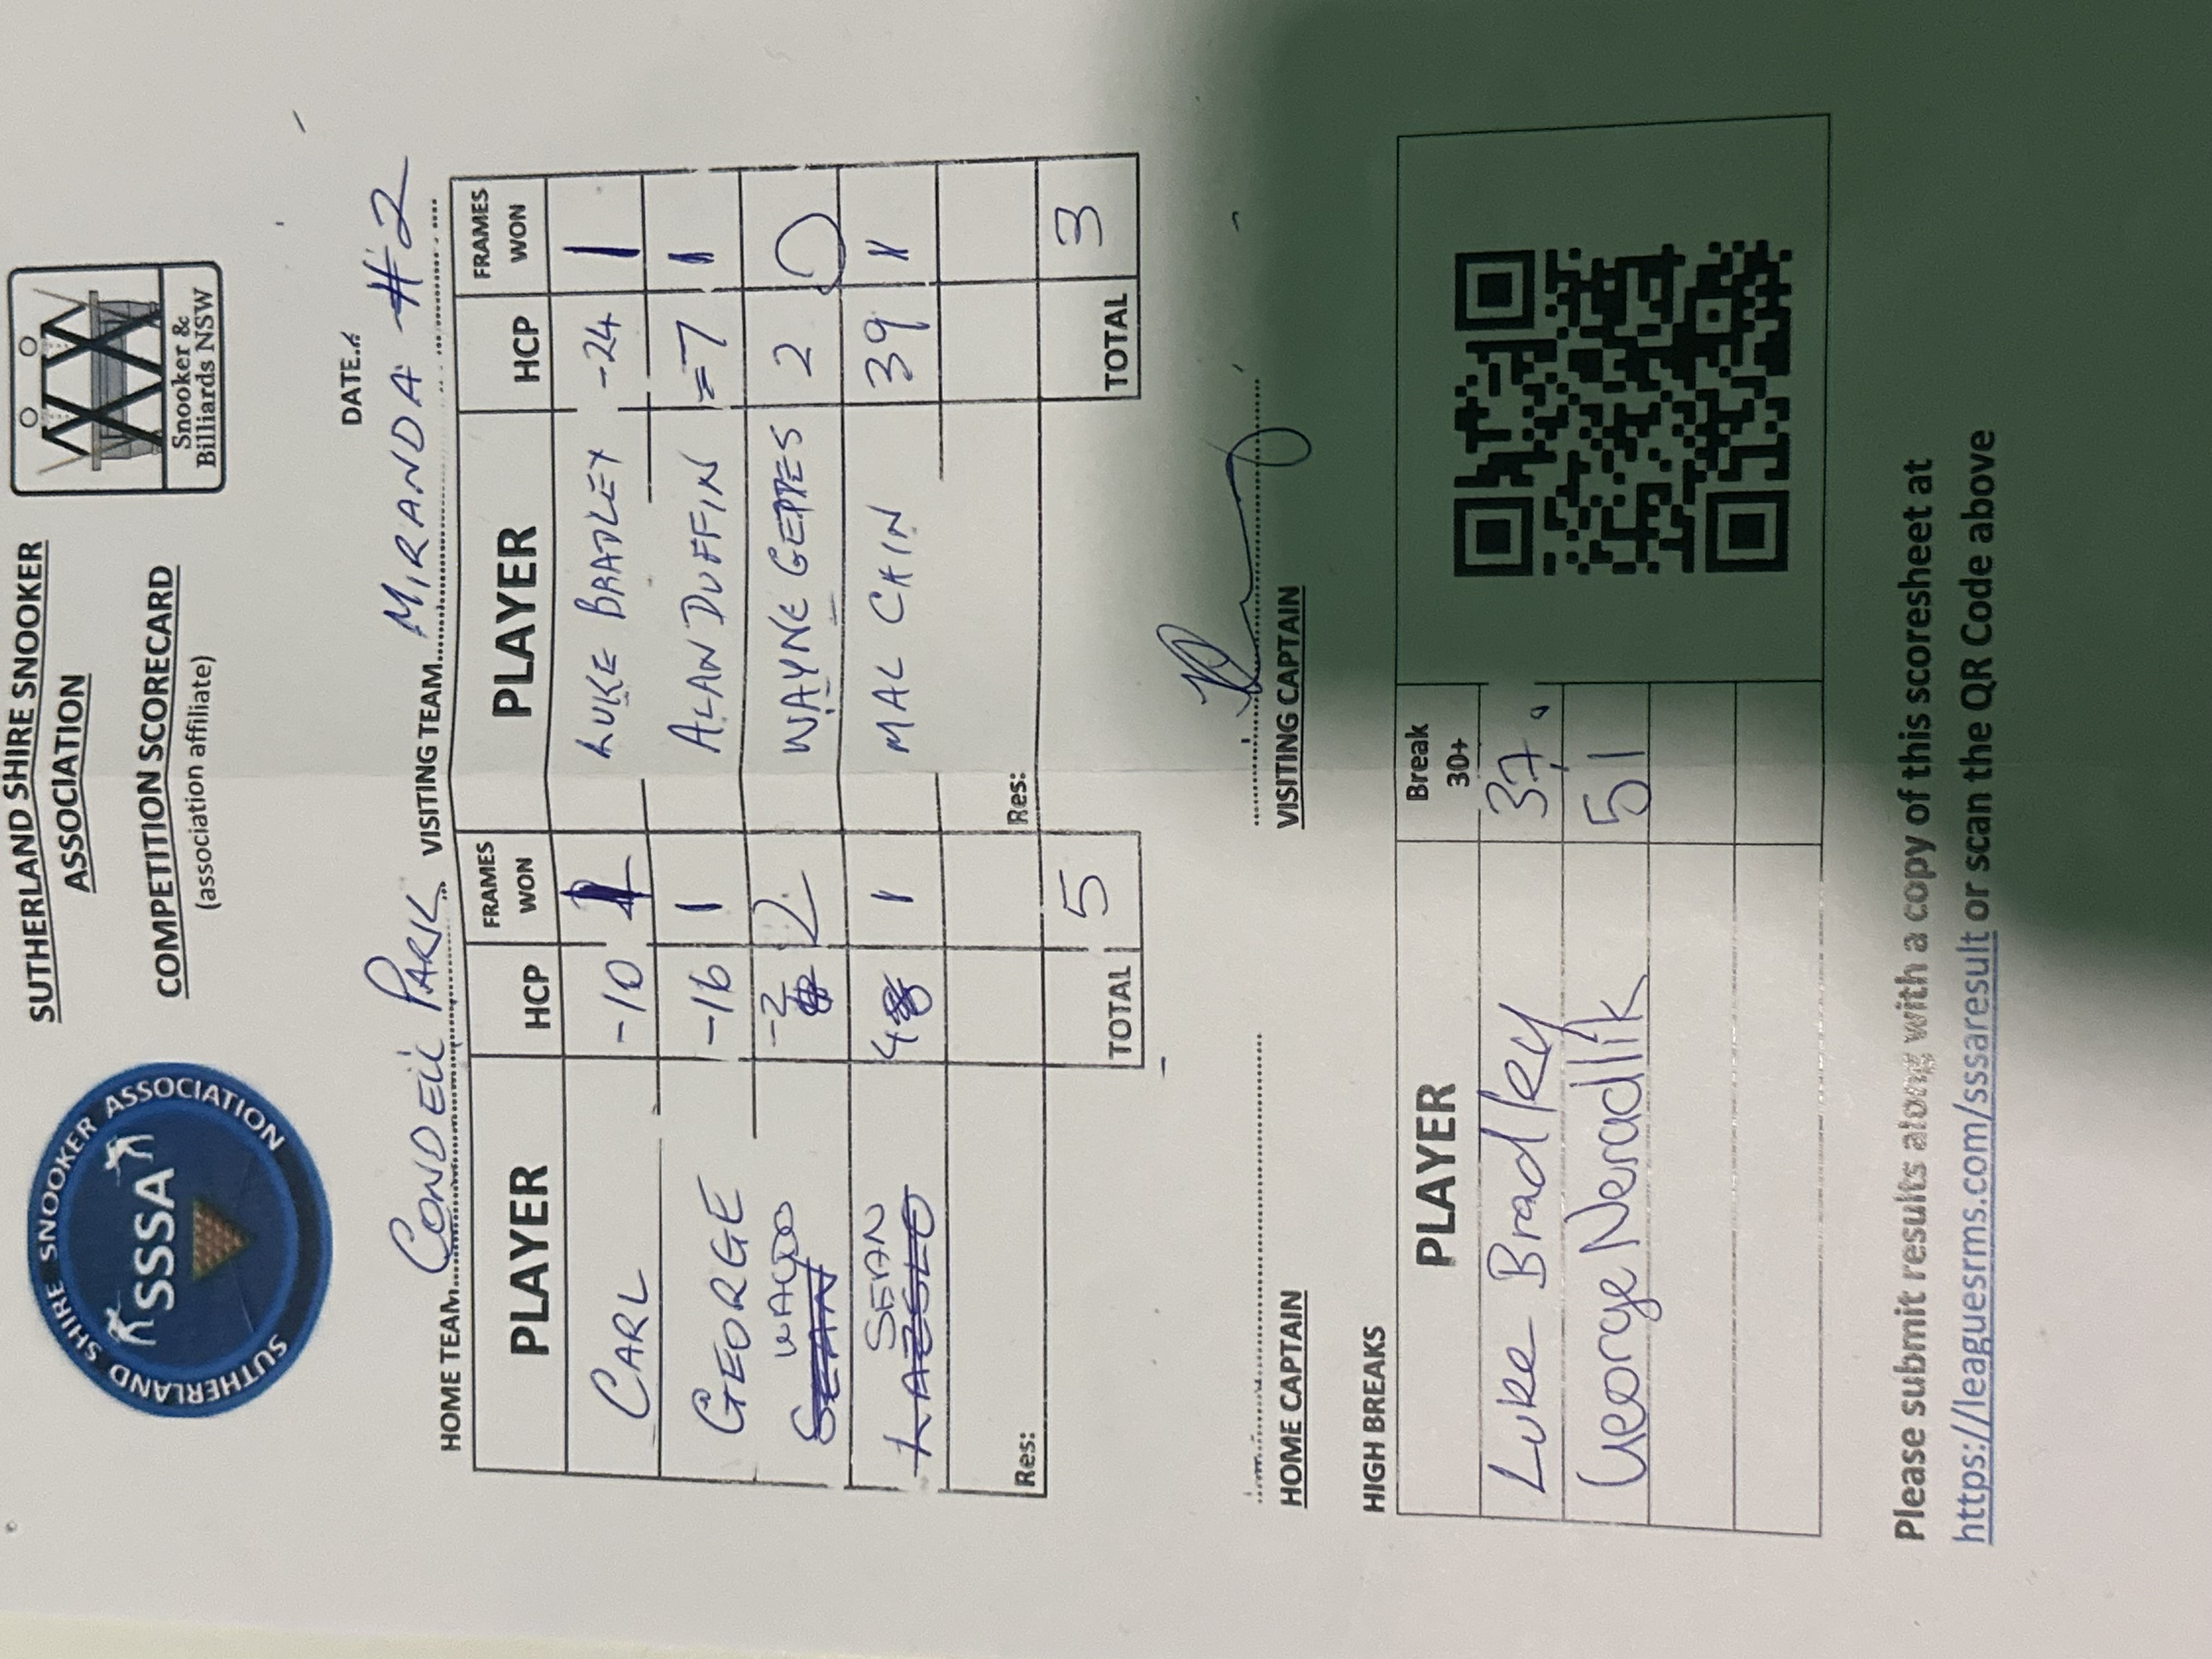 SUTHERLAND SHIRE SNOOKER ASSOCIATION
SSSA
SUTHERLAND SHIRE SNOOKER
ASSOCIATION
COMPETITION SCORECARD
(association affiliate)
Snooker &
Billiards NSW
DATE
HOME TEAM CONDELL PARK VISITING TEAM MIRANDA #2
PLAYER HCP FRAMES WON PLAYER HCP FRAMES WON
CARL -10 1 LUKE BRADLEY -24 1
GEORGE -16 1 ALLAN DUFFIN -7 1
SEAN -2 2 WAYNE GEPPES 2 0
SEAN LAZSLO 1 MAL CHIN 39 1
Res: Res:
TOTAL 5 TOTAL 3
HOME CAPTAIN VISITING CAPTAIN
HIGH BREAKS
PLAYER Break 30+
Luke Bradley 37
George Neradlik 51
Please submit results along with a copy of this scoresheet at
https://leaguesrms.com/sssaresult or scan the QR Code above